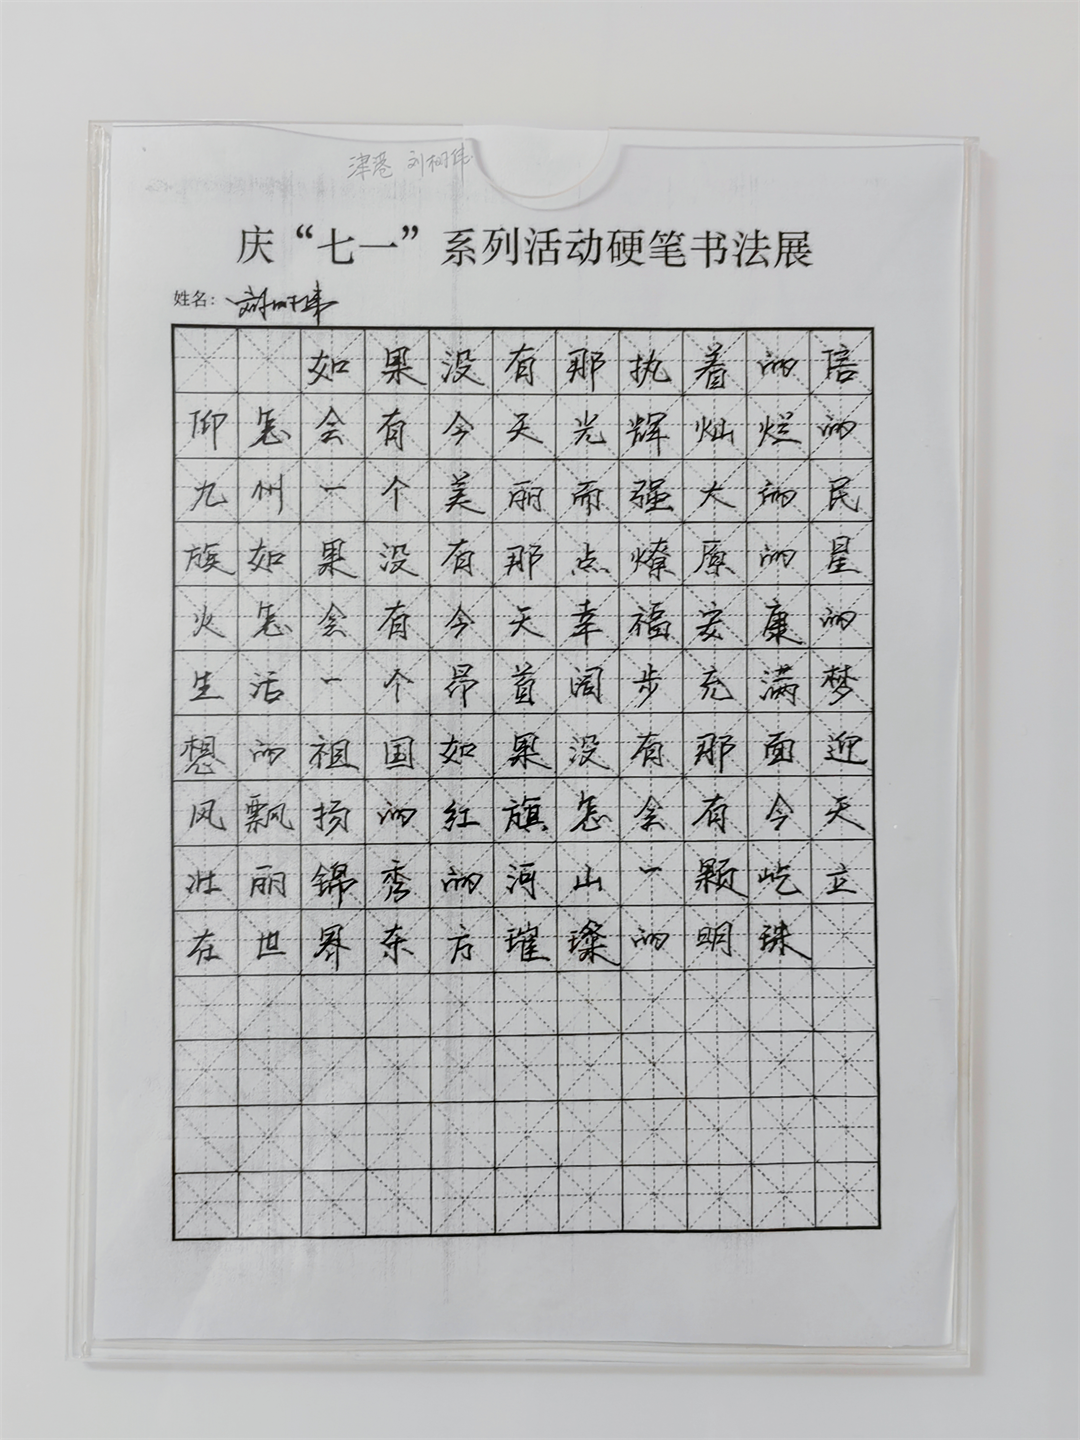 津港 刘树伟
庆“七一”系列活动硬笔书法展
姓名：刘树伟
如果没有那执着的信
仰怎会有今天光辉灿烂的
九州一个美丽而强大的民
族如果没有那点燎原的星
火怎会有今天幸福安康的
生活一个昂首阔步充满梦
想的祖国如果没有那面迎
风飘扬的红旗怎会有今天
壮丽锦秀的河山一颗屹立
在世界东方璀璨的明珠